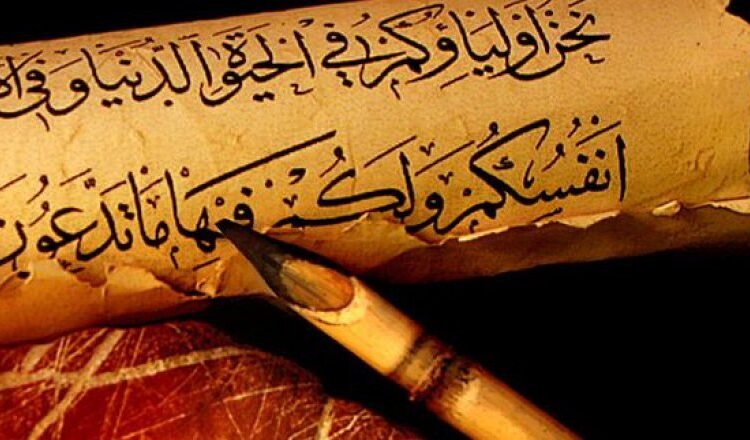 نحن اولياؤكم في الحيوة الدنيا وفي
انفسكم ولكم فيها ما تدعون